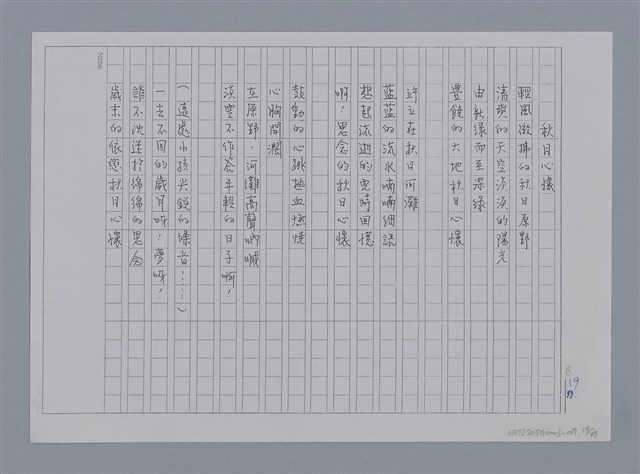 秋日心懷
輕風微拂的秋日原野
清爽的天空淡淡的陽光
由新綠而至深綠
豐饒的大地秋日心懷
竚立在秋日河灘
藍藍的流水喃喃細語
想起流逝的兒時回憶
啊！思念的秋日心懷
鼓動的心跳熱血燃燒
心胸開濶
在原野、河灘高聲吶喊
淡雲不作答年輕的日子啊！
(遠處小孩尖銳的嗓音……)
一去不回的歲月呀！夢呀！
誰不沈迷於綿綿的思念
歲末的依戀秋日心懷
Note
No.
19